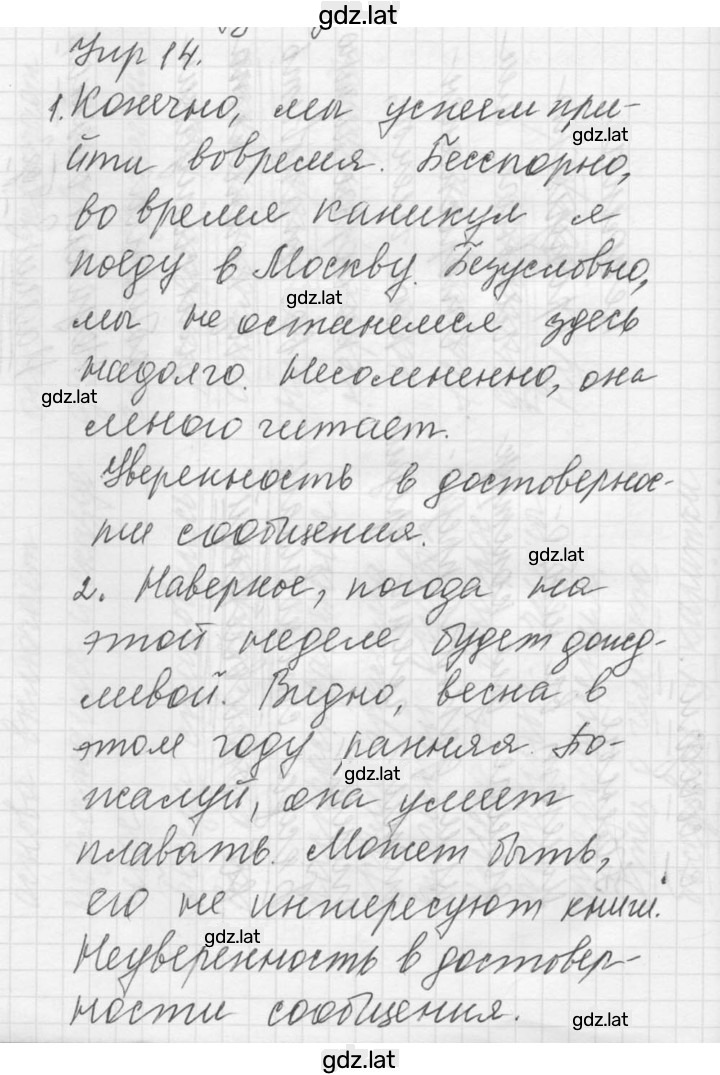 gdz.lat
Упр 14.
1. Конечно, мы успеем при-
gdz.lat
йти вовремя. Бесспорно,
во время каникул я
поеду в Москву. Безусловно,
gdz.lat
мы не останемся здесь
надолго. Несомненно, она
gdz.lat
много читает.
Уверенность в достовернос-
ти сообщения.
gdz.lat
2. Наверное, погода на
этой неделе будет дожд-
ливой. Видно, весна в
этом году ранняя. По-
gdz.lat
жалуй, она умеет
плавать. Может быть,
его не интересуют книги.
gdz.lat
Неуверенность в достовер-
ности сообщения.
gdz.lat
gdz.lat